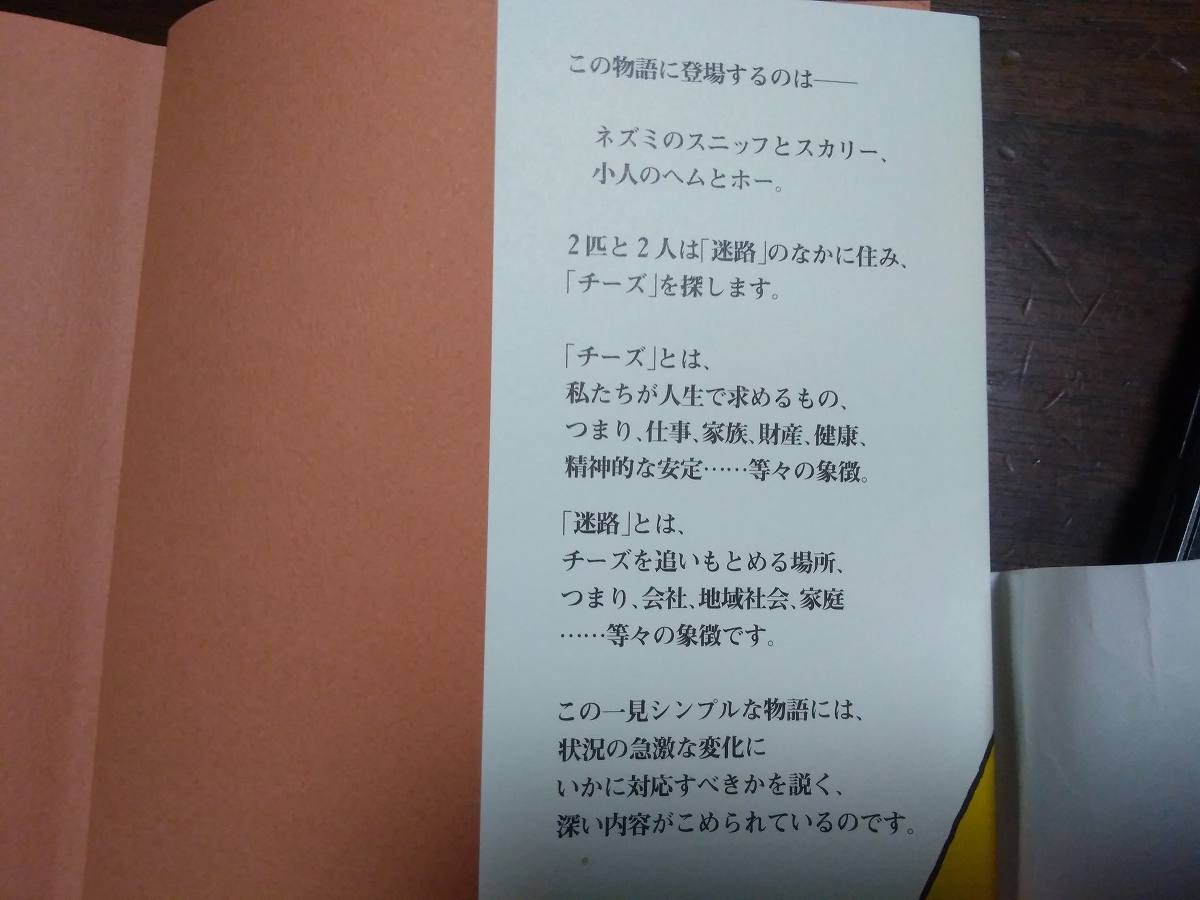 この物語に登場するのは――
ネズミのスニッフとスカリー、
小人のヘムとホー。
2匹と2人は「迷路」のなかに住み、
「チーズ」を探します。
「チーズ」とは、
私たちが人生で求めるもの、
つまり、仕事、家族、財産、健康、
精神的な安定……等々の象徴。
「迷路」とは、
チーズを追いもとめる場所、
つまり、会社、地域社会、家庭
……等々の象徴です。
この一見シンプルな物語には、
状況の急激な変化に
いかに対応すべきかを説く、
深い内容がこめられているのです。